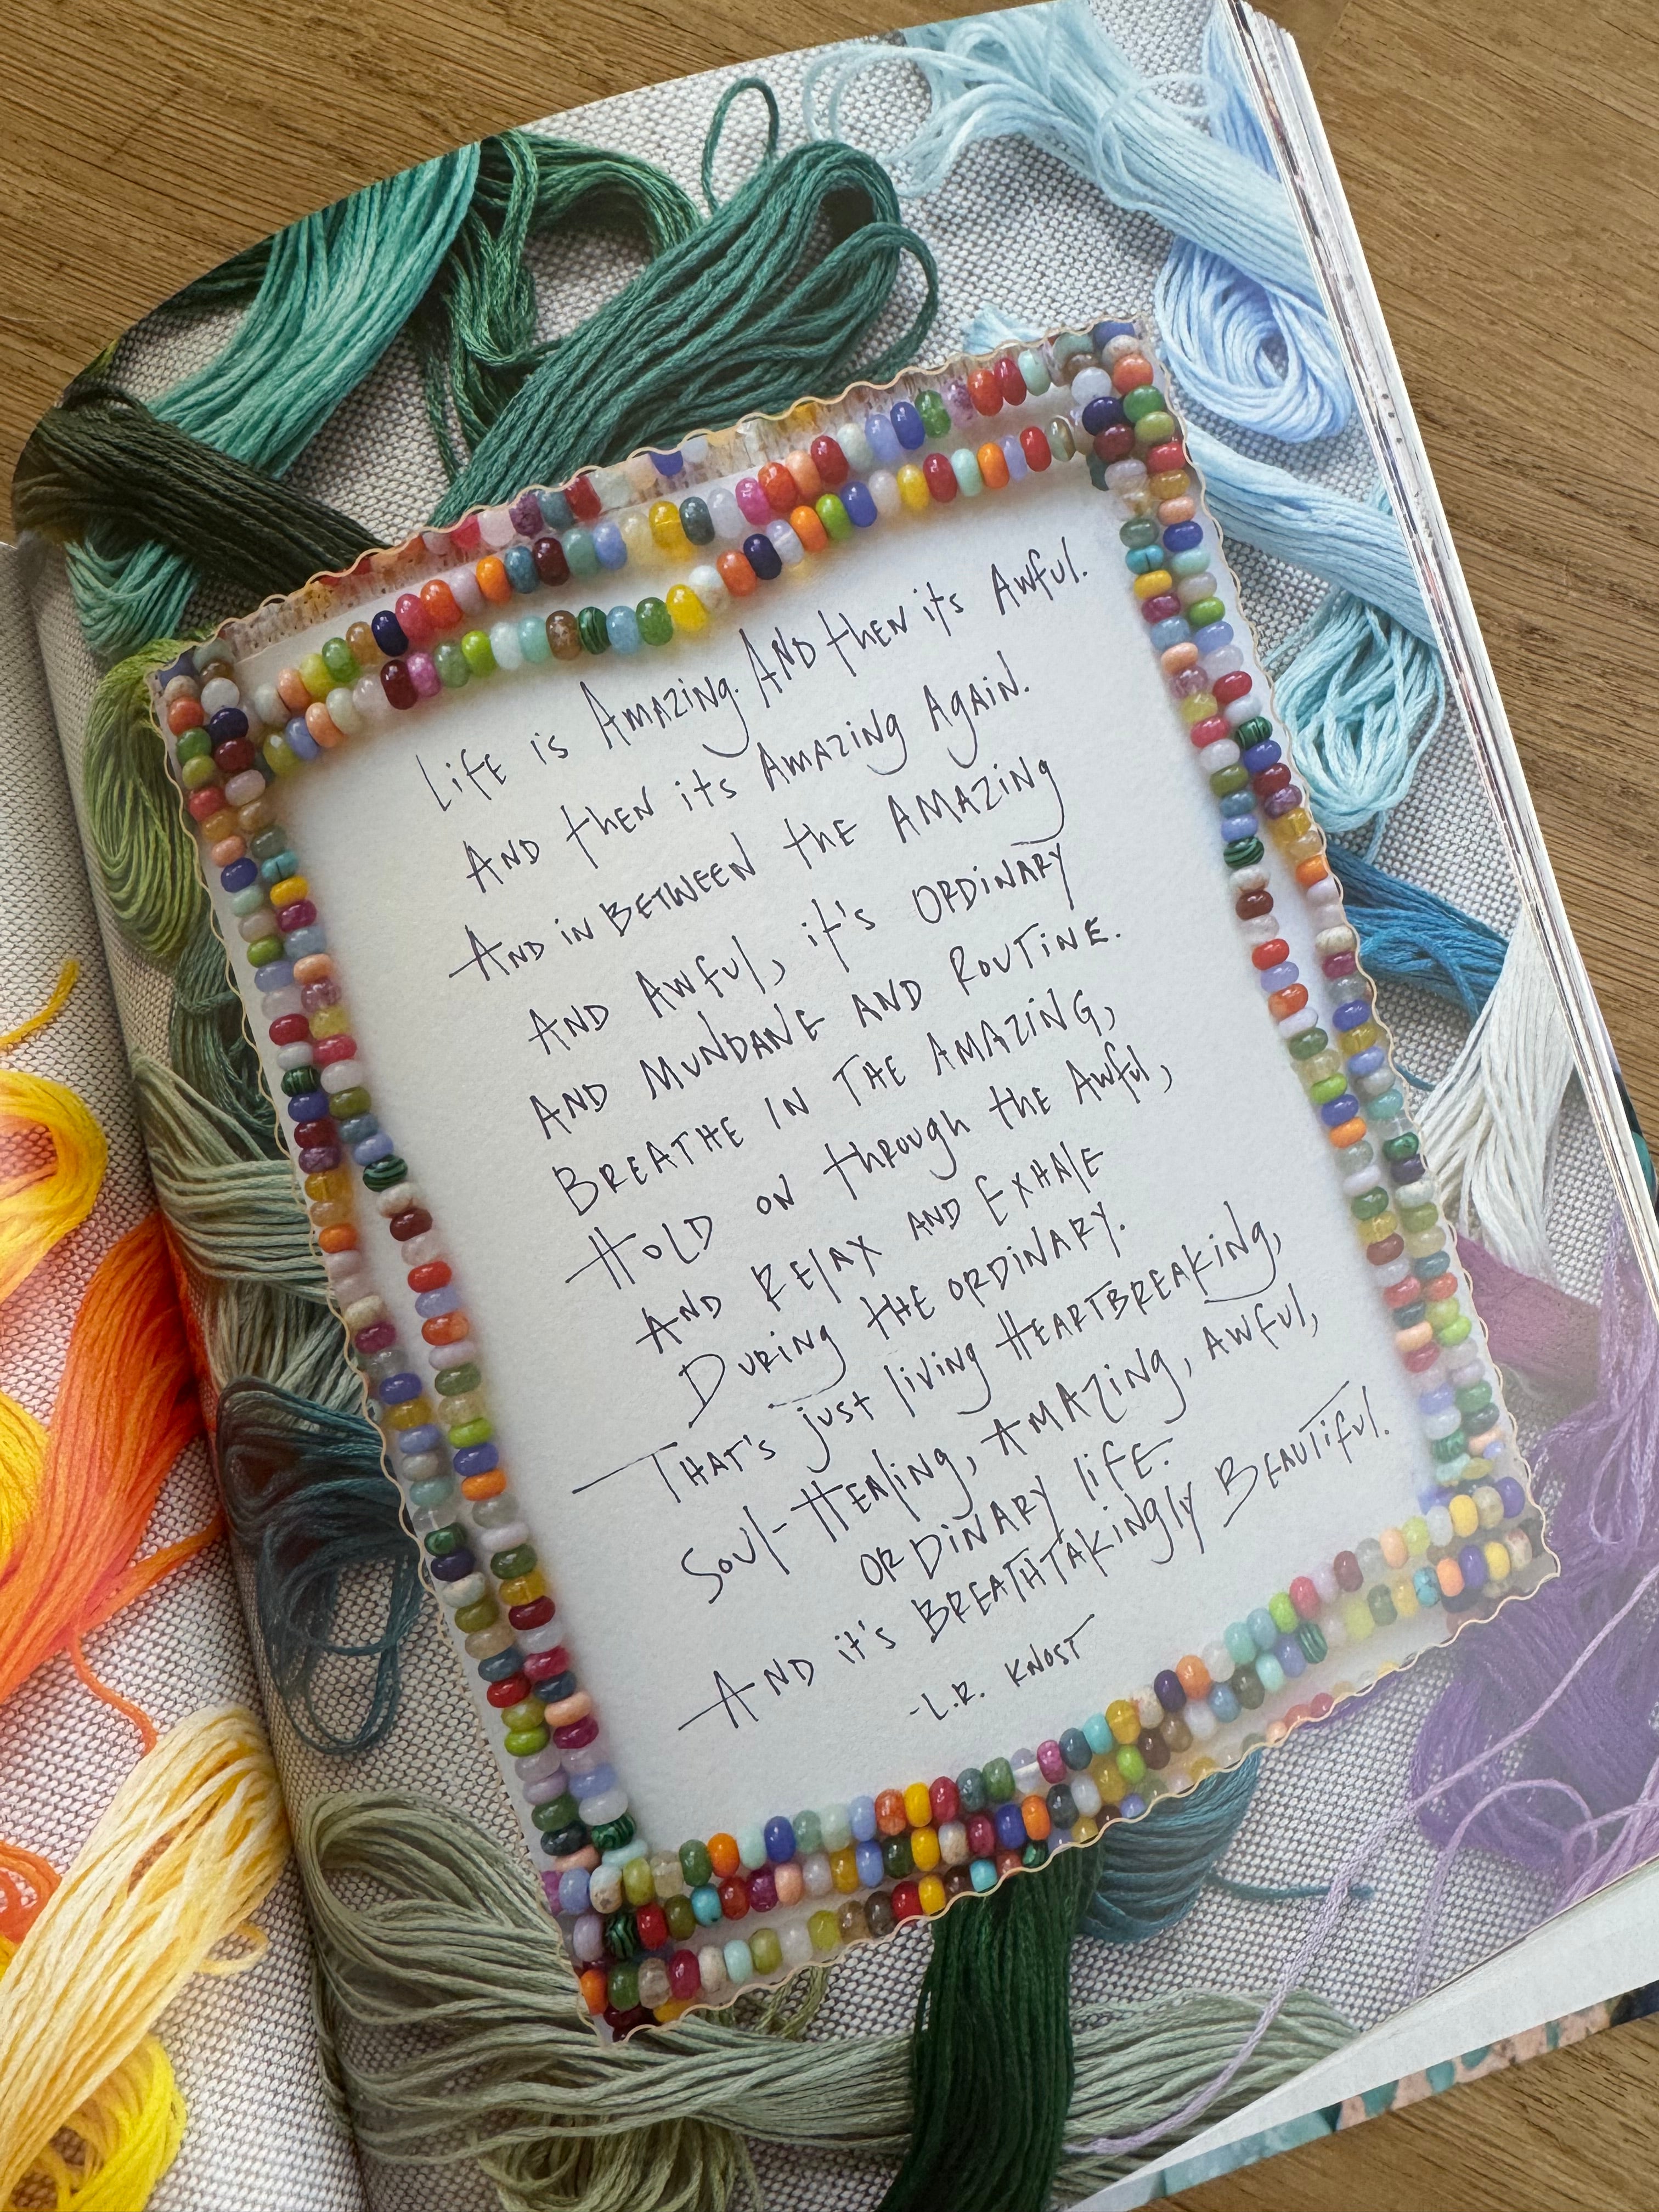 Life is Amazing. And then its Awful.
And then its Amazing Again.
And in between the Amazing
And Awful, it's ordinary
And Mundane and Routine.
Breathe in the Amazing,
Hold on through the Awful,
And Relax and Exhale
During the ordinary.
That's just living Heartbreaking,
Soul-Healing, Amazing, Awful,
Ordinary life.
And it's Breathtakingly Beautiful.
-L.R. Knost